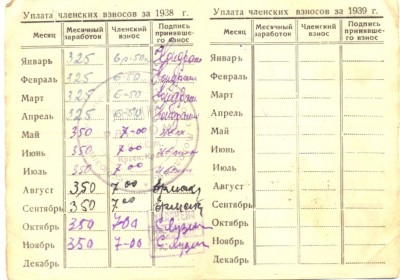 Уплата членских взносов за 1938 г.
Месяц Месячный заработок Членский взнос Подпись принявшего взнос
Январь 325 6р-50к
Февраль 325 6-50
Март 325 6-50
Апрель 325 6-50
Май 350 7-00
Июнь 350 7-00
Июль 350 7-00
Август 350 7-00
Сентябрь 350 7-00
Октябрь 350 7-00
Ноябрь 350 7-00
Декабрь
Уплата членских взносов за 1939 г.
Месяц Месячный заработок Членский взнос Подпись принявшего взнос
Январь
Февраль
Март
Апрель
Май
Июнь
Июль
Август
Сентябрь
Октябрь
Ноябрь
Декабрь